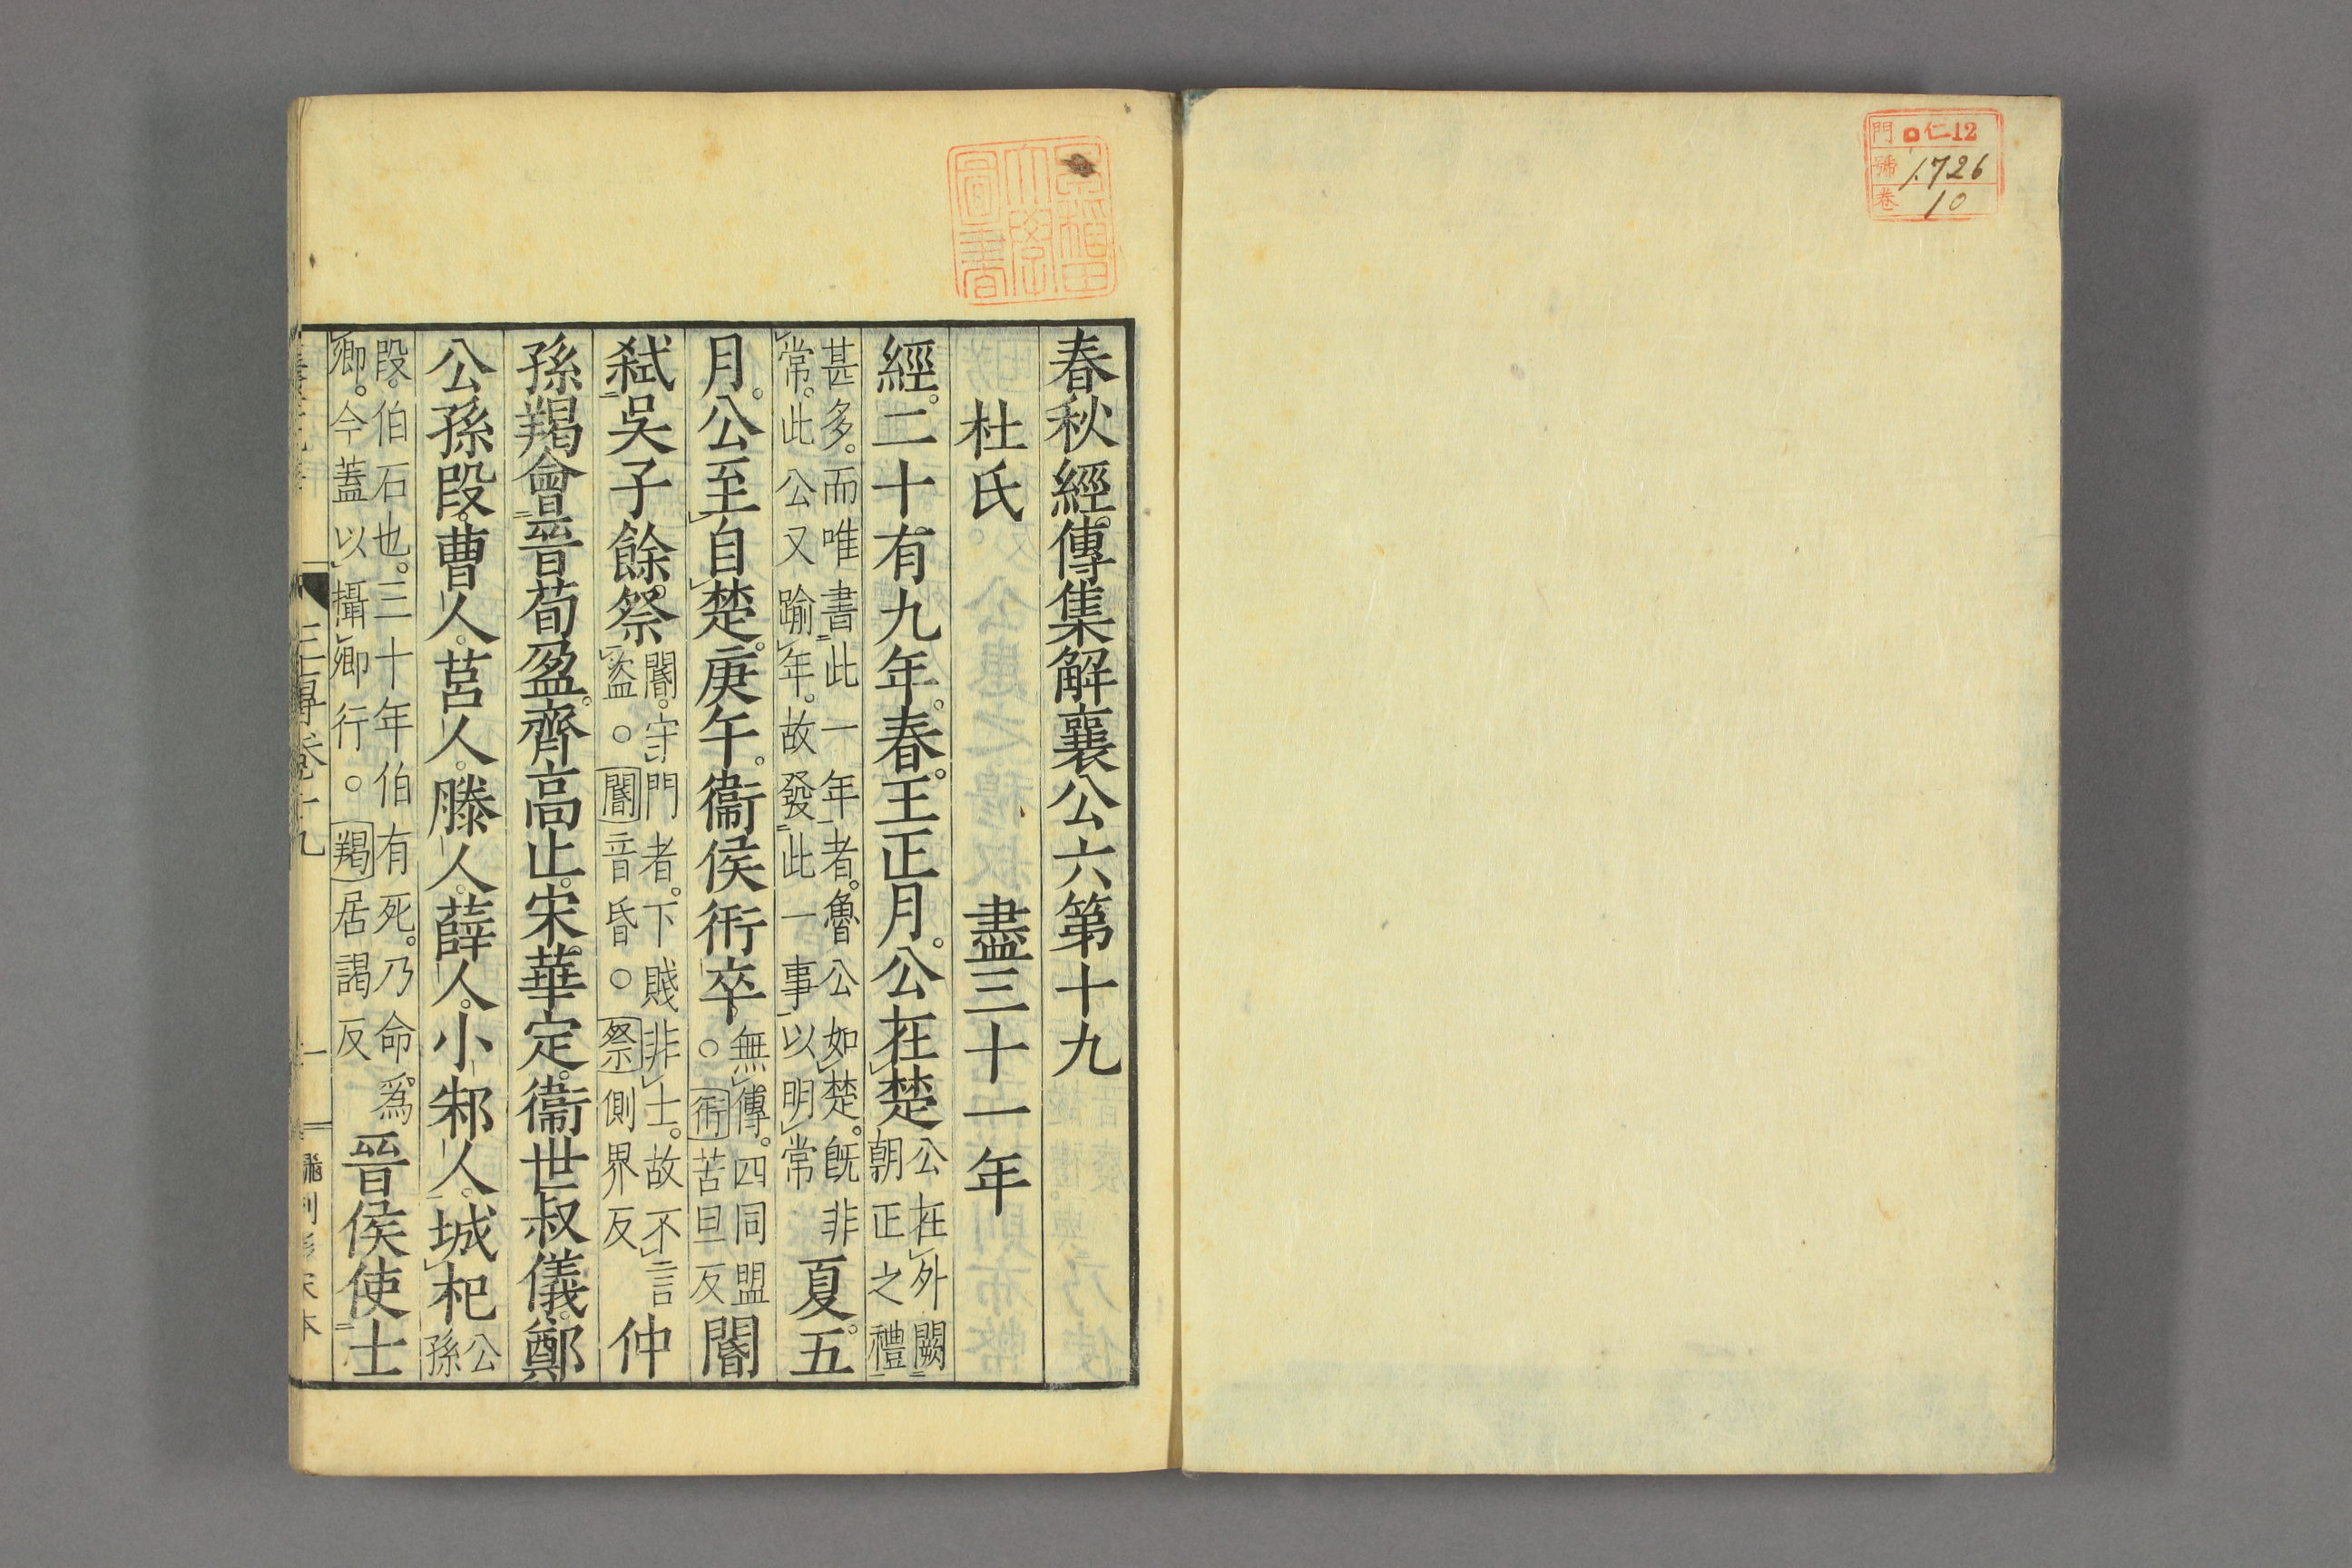 門 仁12
號 1726
卷 10
早稲田大學圖書
春秋經傳集解襄公六第十九
杜氏 盡三十一年
經。二十有九年。春。王正月。公在楚公在外闕朝正之禮
甚多。而唯書此一年者。魯公如楚。既非常。此公又踰年。故發此一事以明常夏。五
月。公至自楚。庚午。衞侯衎卒。無傳。四同盟○衎苦旦反閽
弑吳子餘祭閽。守門者。下賤非士。故不言盜○閽音昏○祭側界反仲
孫羯會晉荀盈。齊高止。宋華定。衞世叔儀。鄭
公孫段。曹人。莒人。滕人。薛人。小邾人。城杞公孫
段。伯石也。三十年伯有死。乃命爲卿。今蓋以攝卿行○羯居謁反晉侯使士